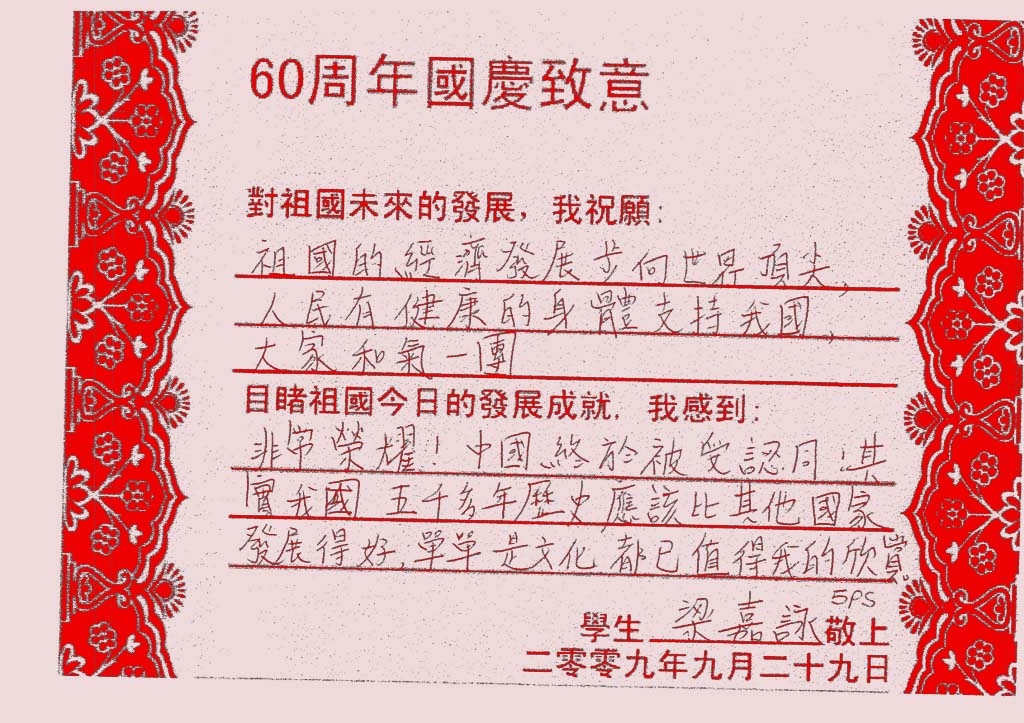 60周年國慶致意
對祖國未來的發展，我祝願：
祖國的經濟發展步向世界頂尖，
人民有健康的身體支持我國，
大家和氣一團
目睹祖國今日的發展成就，我感到：
非常榮耀！中國終於被受認同！其
實我國五千多年歷史應該比其他國家
發展得好，單單是文化都已值得我的欣賞。
5PS
學生 梁嘉詠 敬上
二零零九年九月二十九日